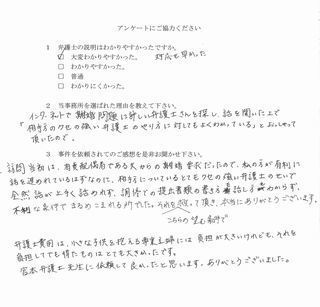 アンケートにご協力ください
1 弁護士の説明はわかりやすかったですか。
☑ 大変わかりやすかった。 対応も早かった
□ わかりやすかった。
□ 普通
□ わかりにくかった。
2 当事務所を選ばれた理由を教えて下さい。
インターネットで離婚問題に詳しい弁護士さんを探し、話を聞いた上で
「相手方のクセの強い弁護士のやり方に対してもよくわかっている」とおっしゃって
頂いたので。
3 事件を依頼されてのご感想を是非お聞かせ下さい。
訪問当初は、有責配偶者である夫からの離婚要求だったので、私の方が有利に
話を進められているはずなのに、相手方についているとてもクセの強い弁護士のせいで
全然話が上手く詰めれず、調停での提出書類の書き方
不利な条件でまるめこまれる所でした。それを
頂き、本当にありがとうございます。
こちらの望む条件で
弁護士費用は、小さな子供を抱える専業主婦には負担が大きいけれども、それを
負担してでも得たものはとても大きかったです。
宮本弁護士先生に依頼して良かったと思います。ありがとうございました。